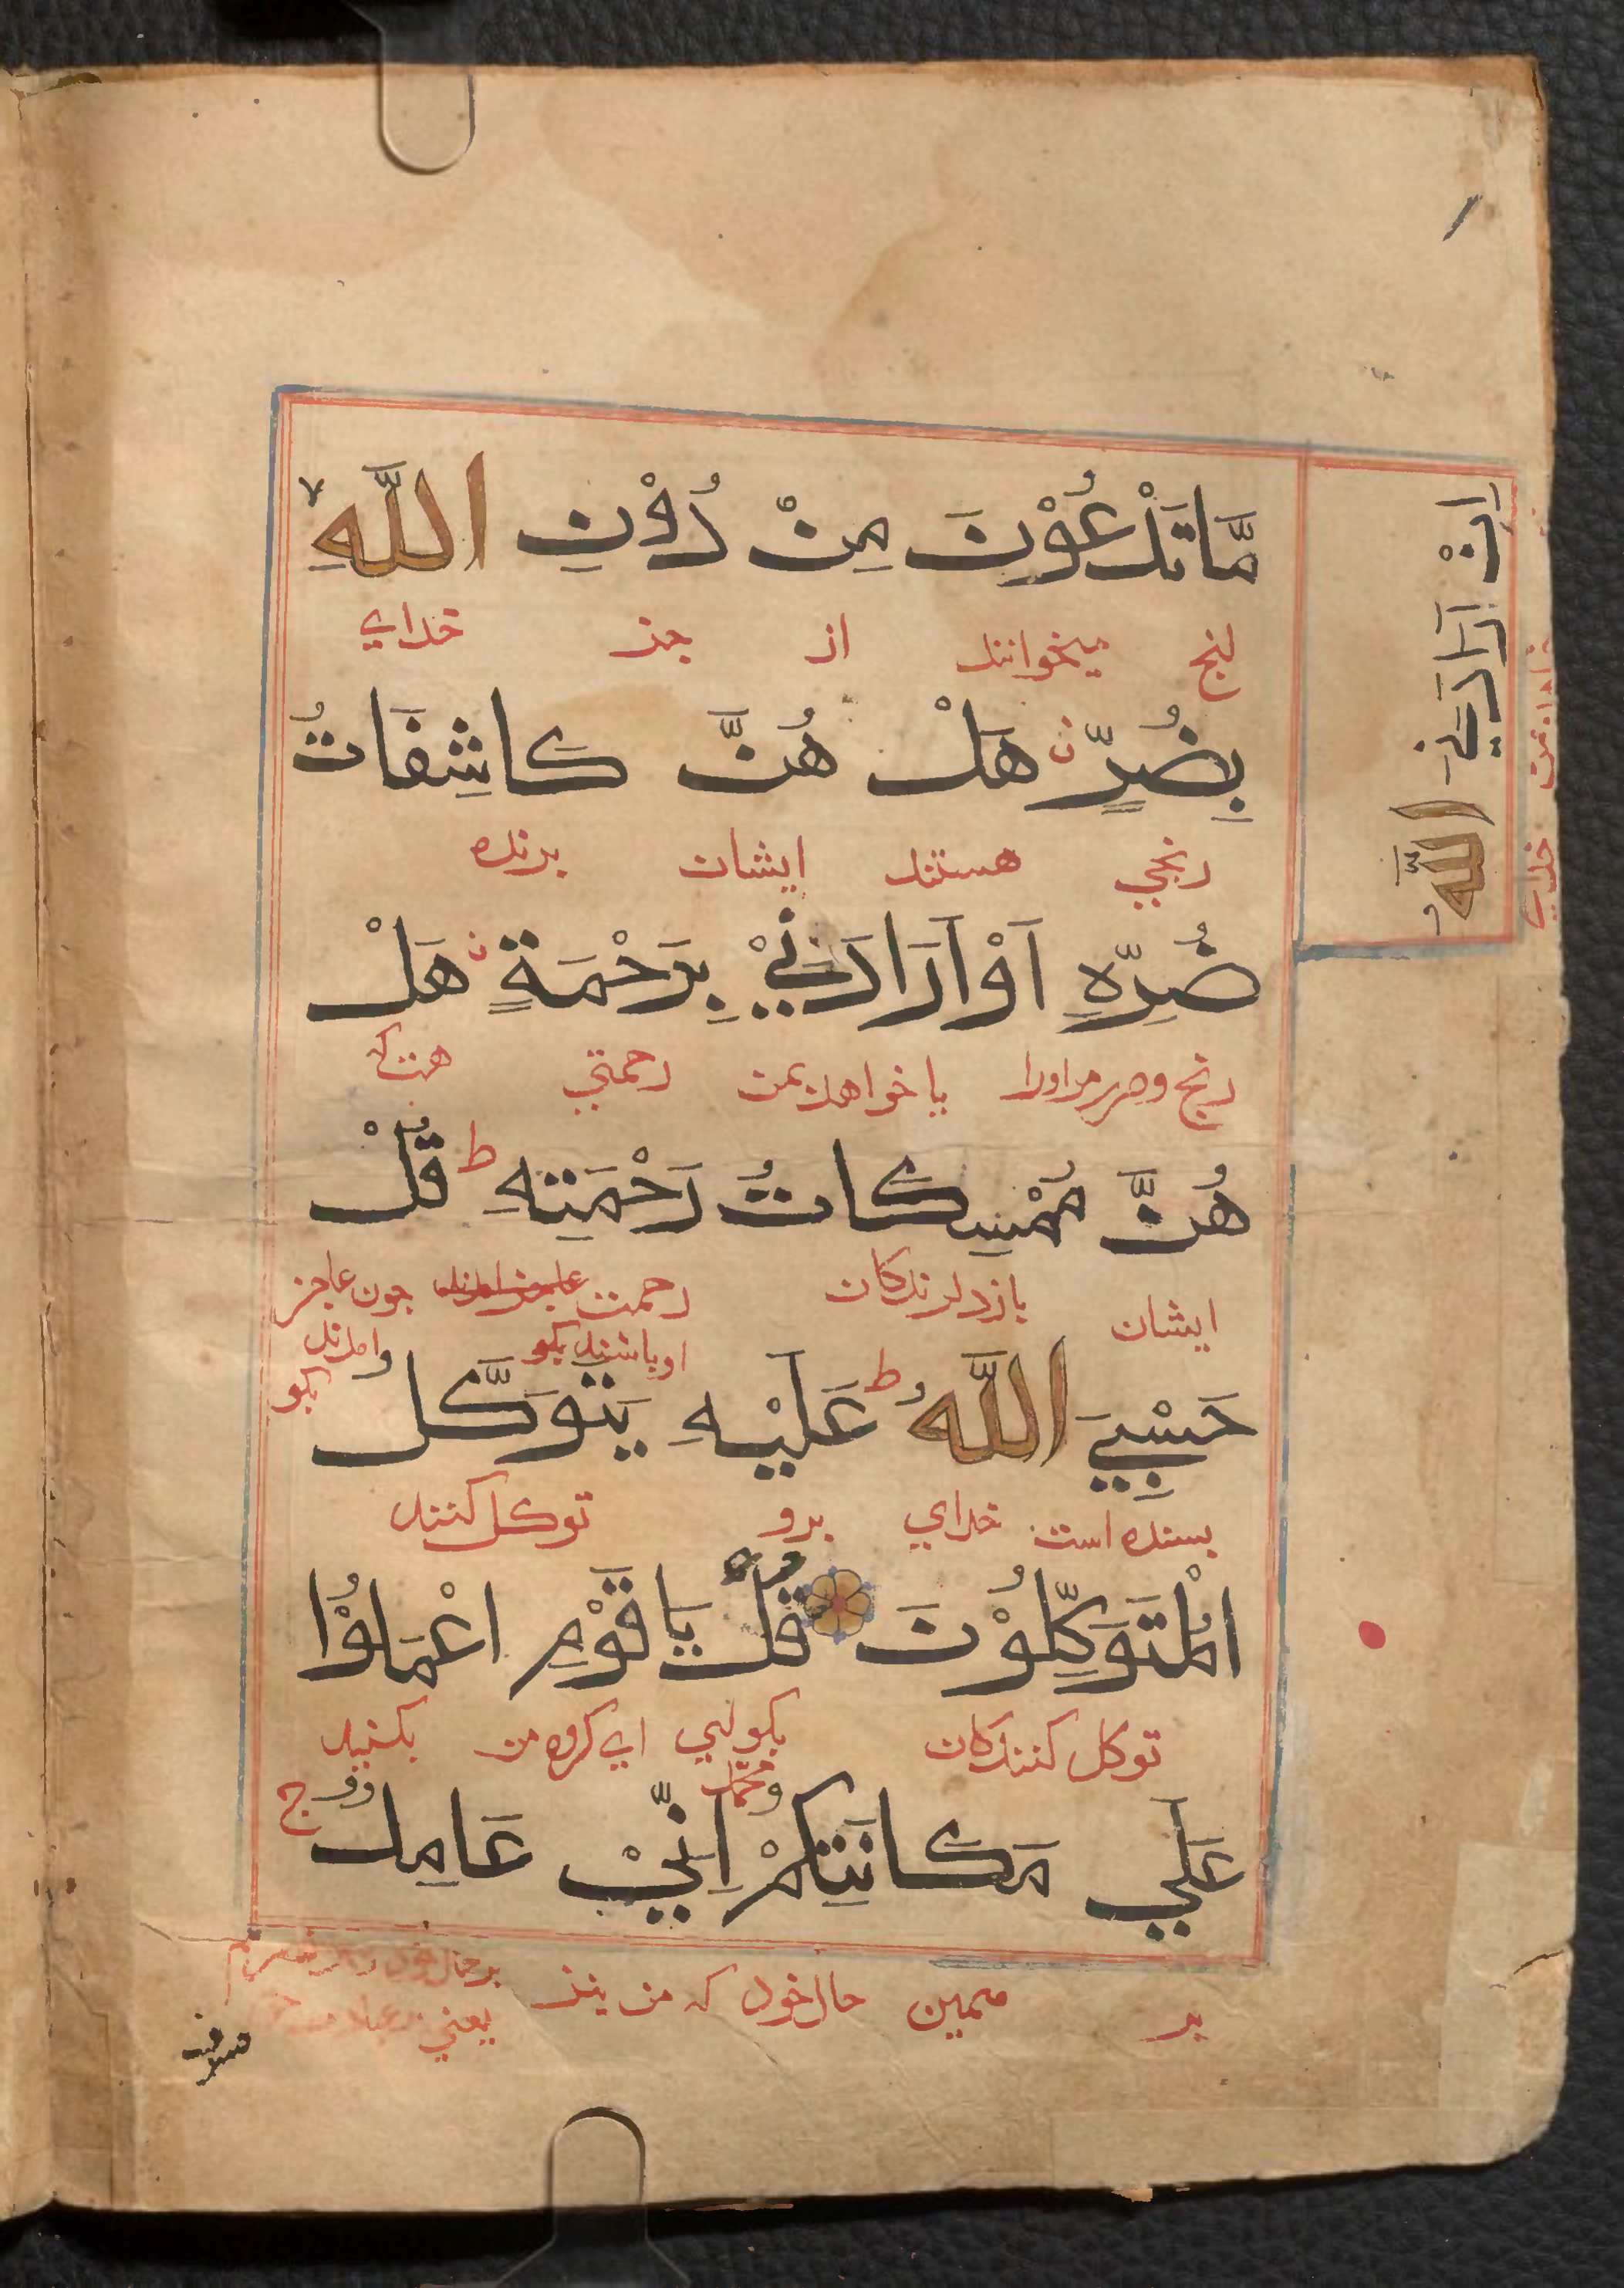 مَّا تَدْعُوْنَ مِنْ دُوْنِ اللَّهِ
اِنْ اَرَادَنِيَ اللَّهُ
انچ میخوانند از جز خدای
بِضُرٍّ هَلْ هُنَّ كَاشِفَاتُ
رنجی هستند ایشان برنده
ضُرِّهِ اَوْ اَرَادَنِيْ بِرَحْمَةٍ هَلْ
رنج وضرر مر اورا یا خواهد بمن رحمتی هست که
هُنَّ مُمْسِكَاتُ رَحْمَتِهِ ط قُلْ
ایشان بازدارندکان رحمت جون عاجز
او باشند بکو وامدند
بکو
حَسْبِيَ اللَّهُ ط عَلَيْهِ يَتَوَكَّلُ
بسنده است خدای برو توکل کنند
الْمُتَوَكِّلُوْنَ قُلْ يَا قَوْمِ اعْمَلُوْا
توکل کنندکان بکو ای کروه من بکنید
محمد
عَلَي مَكَانَتِكُمْ اِنِّيْ عَامِلٌ ج
بر همین حال خود که من نیز بر حال خود
یعنی
سوف